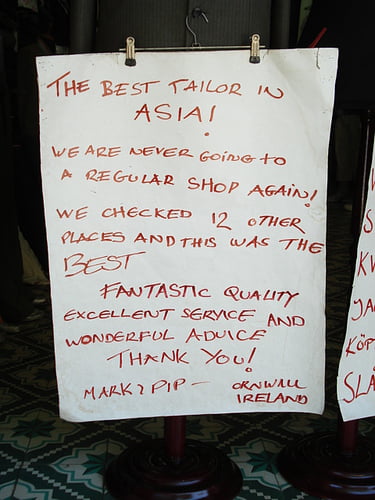 THE BEST TAILOR IN
ASIA!
WE ARE NEVER GOING TO
A REGULAR SHOP AGAIN!
WE CHECKED 12 OTHER
PLACES AND THIS WAS THE
BEST
FANTASTIC QUALITY
EXCELLENT SERVICE AND
WONDERFUL ADVICE
THANK YOU!
MARK & PIP - CORNWALL
IRELAND